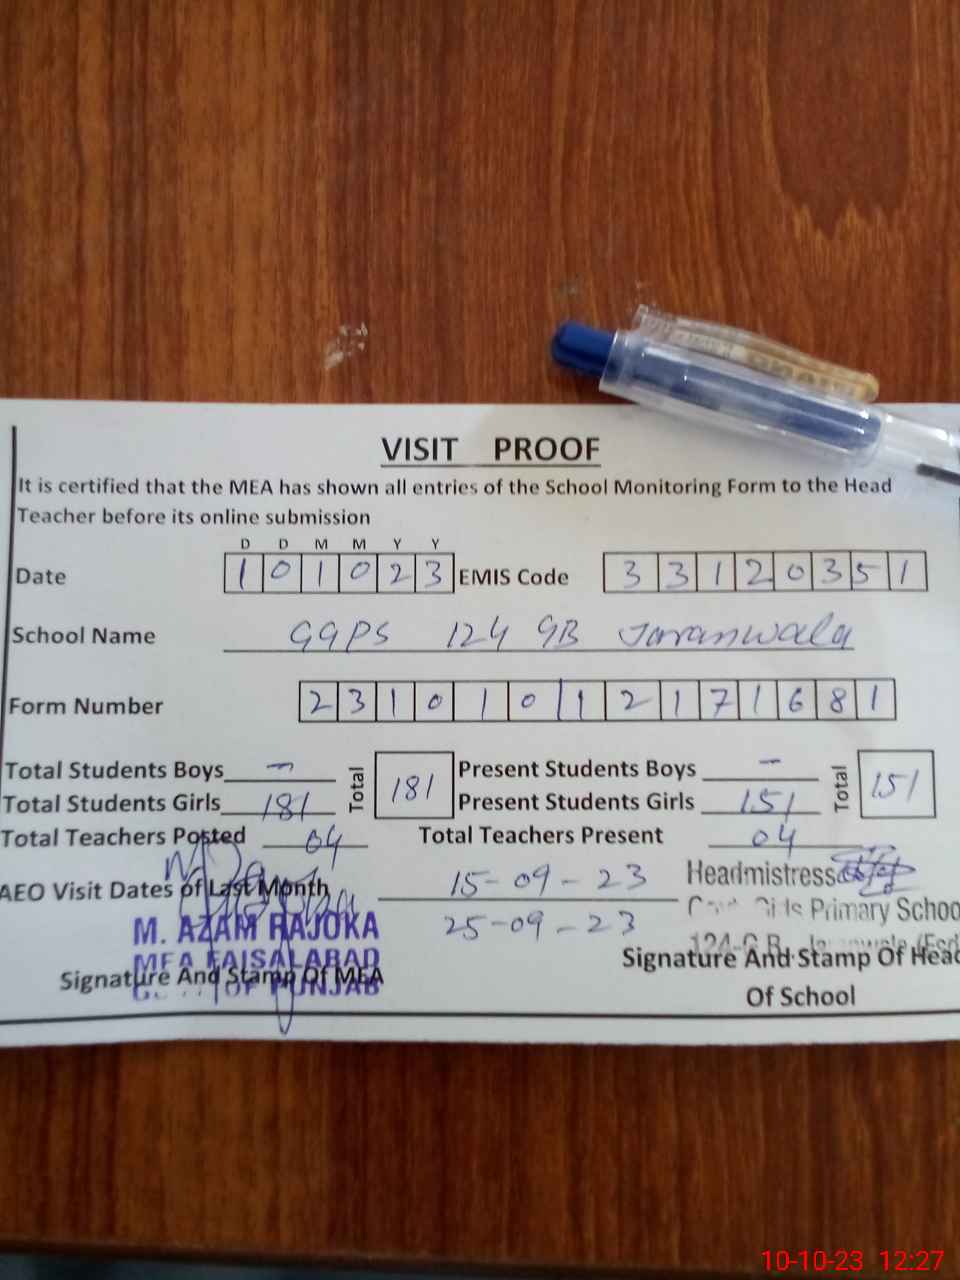 VISIT PROOF
It is certified that the MEA has shown all entries of the School Monitoring Form to the Head
Teacher before its online submission
D D M M Y Y
Date 1 0 1 0 2 3 EMIS Code 3 3 1 2 0 3 5 1
School Name GGPS 124 GB Jaranwala
Form Number 2 3 1 0 1 0 1 2 1 7 1 6 8 1
Total Students Boys — Total 181 Present Students Boys — Total 151
Total Students Girls 181 Present Students Girls 151
Total Teachers Posted 04 Total Teachers Present 04
AEO Visit Dates of Last Month 15-09-23 Headmistress
25-09-23 Govt. Girls Primary Schoo
M. AZAM RAJOKA 124-G.B. Jaranwala (Fsd
MEA FAISALABAD
GOVT OF PUNJAB
Signature And Stamp Of MEA Signature And Stamp Of Head
Of School
10-10-23 12:27